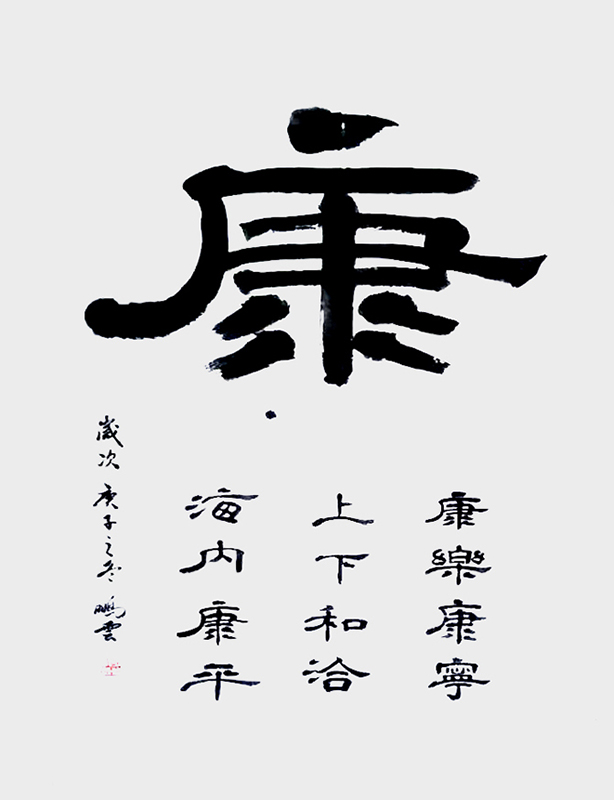 康
康樂康寧
上下和洽
海内康平
歲次庚子之冬鵬雲